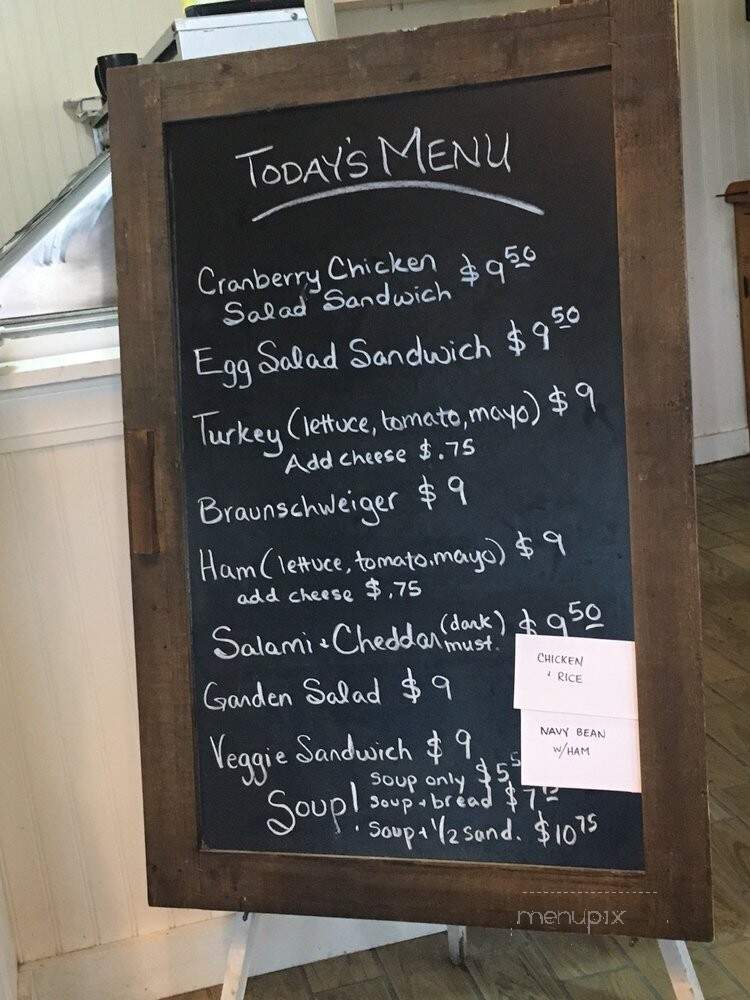 TODAY'S MENU
Cranberry Chicken $9 50
Salad Sandwich
Egg Salad Sandwich $9 50
Turkey (lettuce, tomato, mayo) $9
Add cheese $.75
Braunschweiger $9
Ham (lettuce, tomato, mayo) $9
add cheese $.75
Salami + Cheddar (dark) must. $9 50
CHICKEN
+ RICE
Garden Salad $9
NAVY BEAN
W/HAM
Veggie Sandwich $9
soup only $5
Soup! soup + bread $7
soup + 1/2 sand. $10 75
menupix